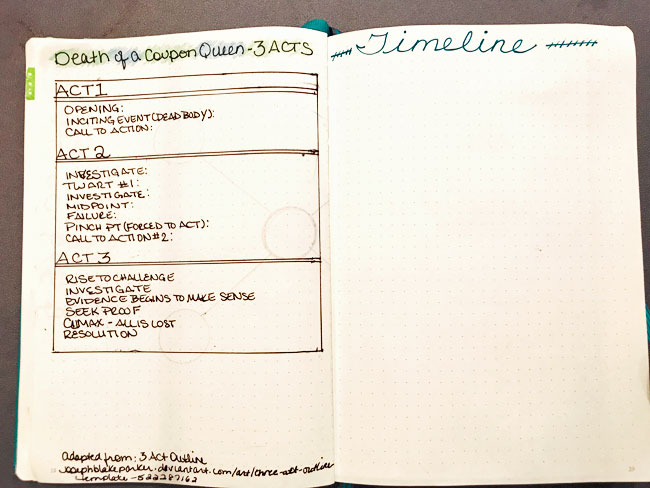 Death of a Coupon Queen - 3 ACTS
ACT 1
OPENING:
INCITING EVENT (DEAD BODY):
CALL TO ACTION:
ACT 2
INVESTIGATE:
TWART #1:
INVESTIGATE:
MIDPOINT:
FAILURE:
PINCH PT (FORCED TO ACT):
CALL TO ACTION #2:
ACT 3
RISE TO CHALLENGE
INVESTIGATE
EVIDENCE BEGINS TO MAKE SENSE
SEEK PROOF
CLIMAX - ALL IS LOST
RESOLUTION
adapted from: 3 Act Outline
josephblakeparker.deviantart.com/art/three-act-outline
template-522287162
Timeline